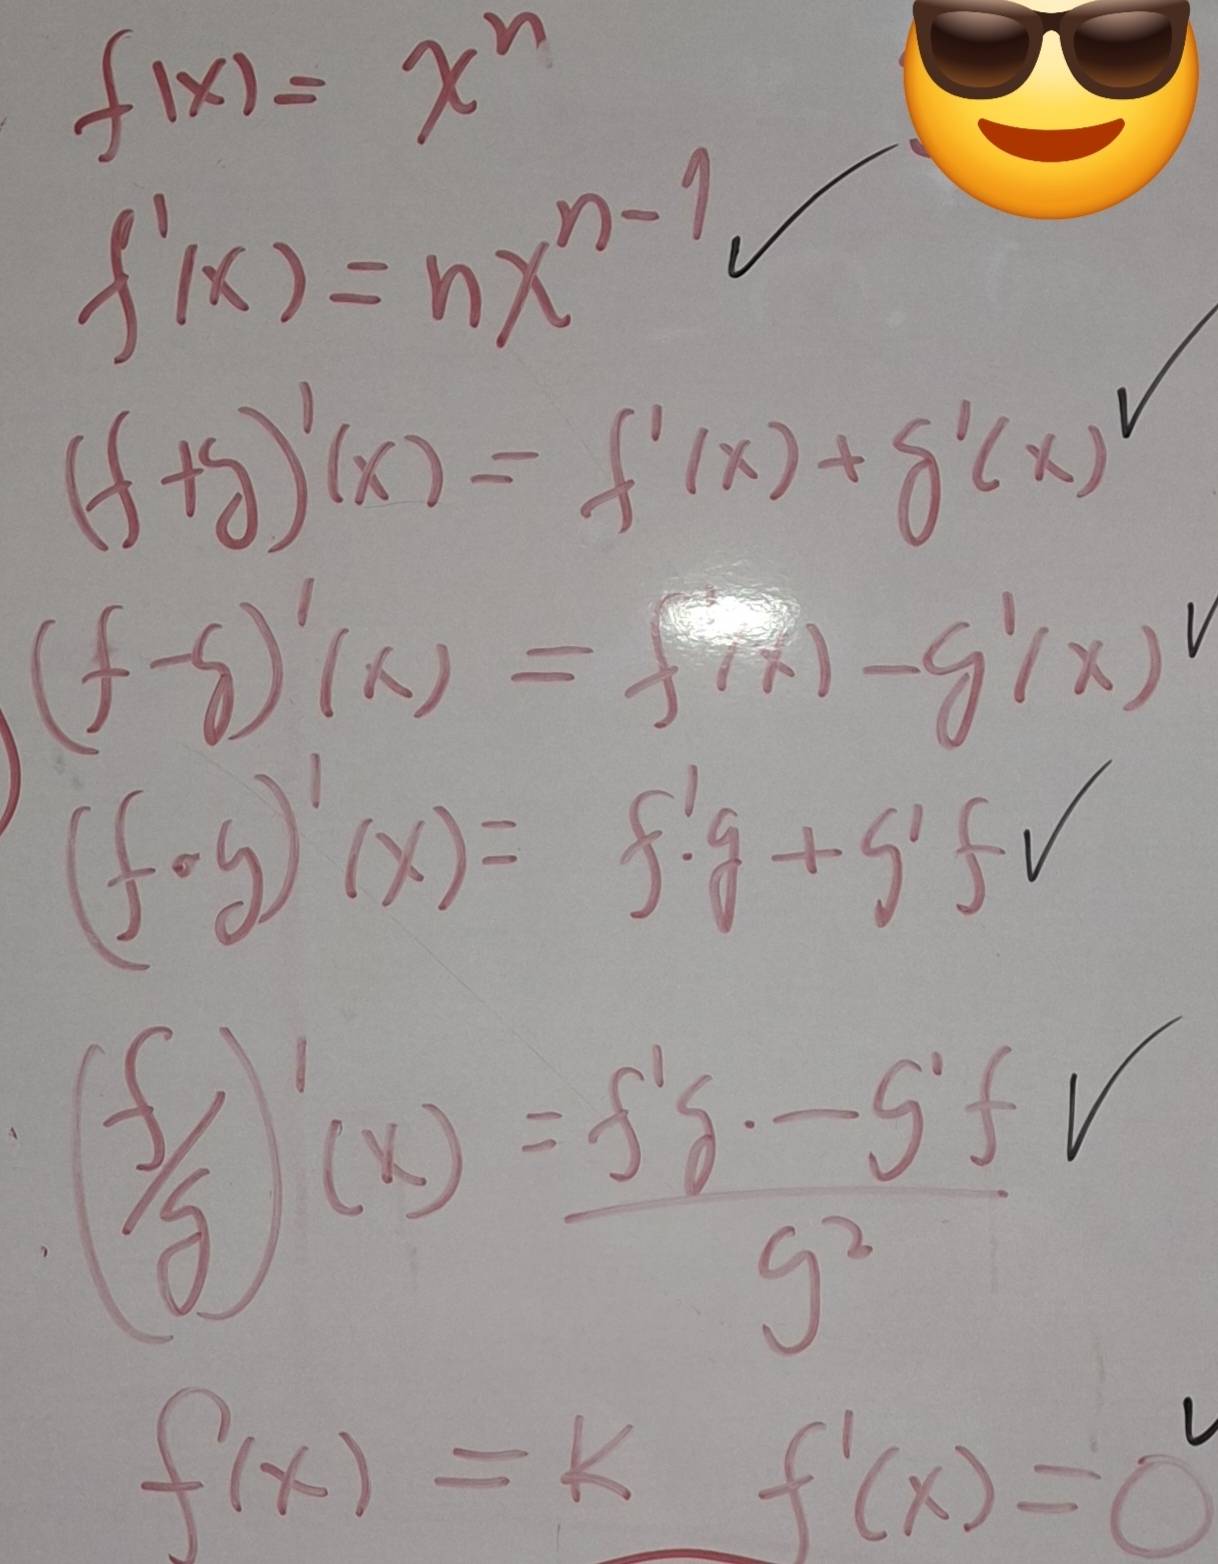 f(x) = xⁿ
f'(x) = nxⁿ⁻¹ ✓
(f+g)'(x) = f'(x) + g'(x) ✓
(f-g)'(x) = f'(x) - g'(x) ✓
(f•g)'(x) = f'·g + g'f ✓
(f/g)'(x) = f'g·- g'f / g² ✓
f(x) = K f'(x) = 0 ✓